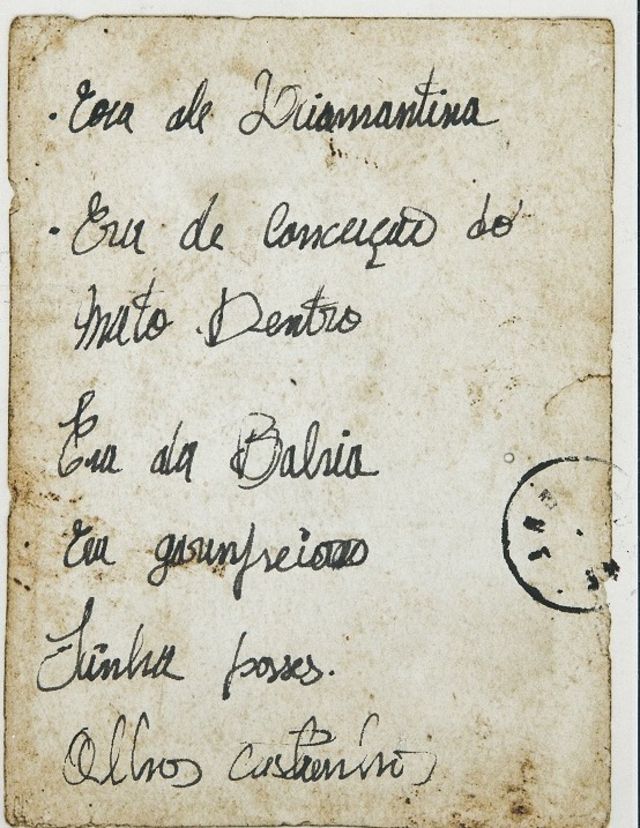 . Era de Diamantina
. Era de Conceição do
Mato Dentro
Era da Bahia
Era
Tinha posses.
Olhos castanhos